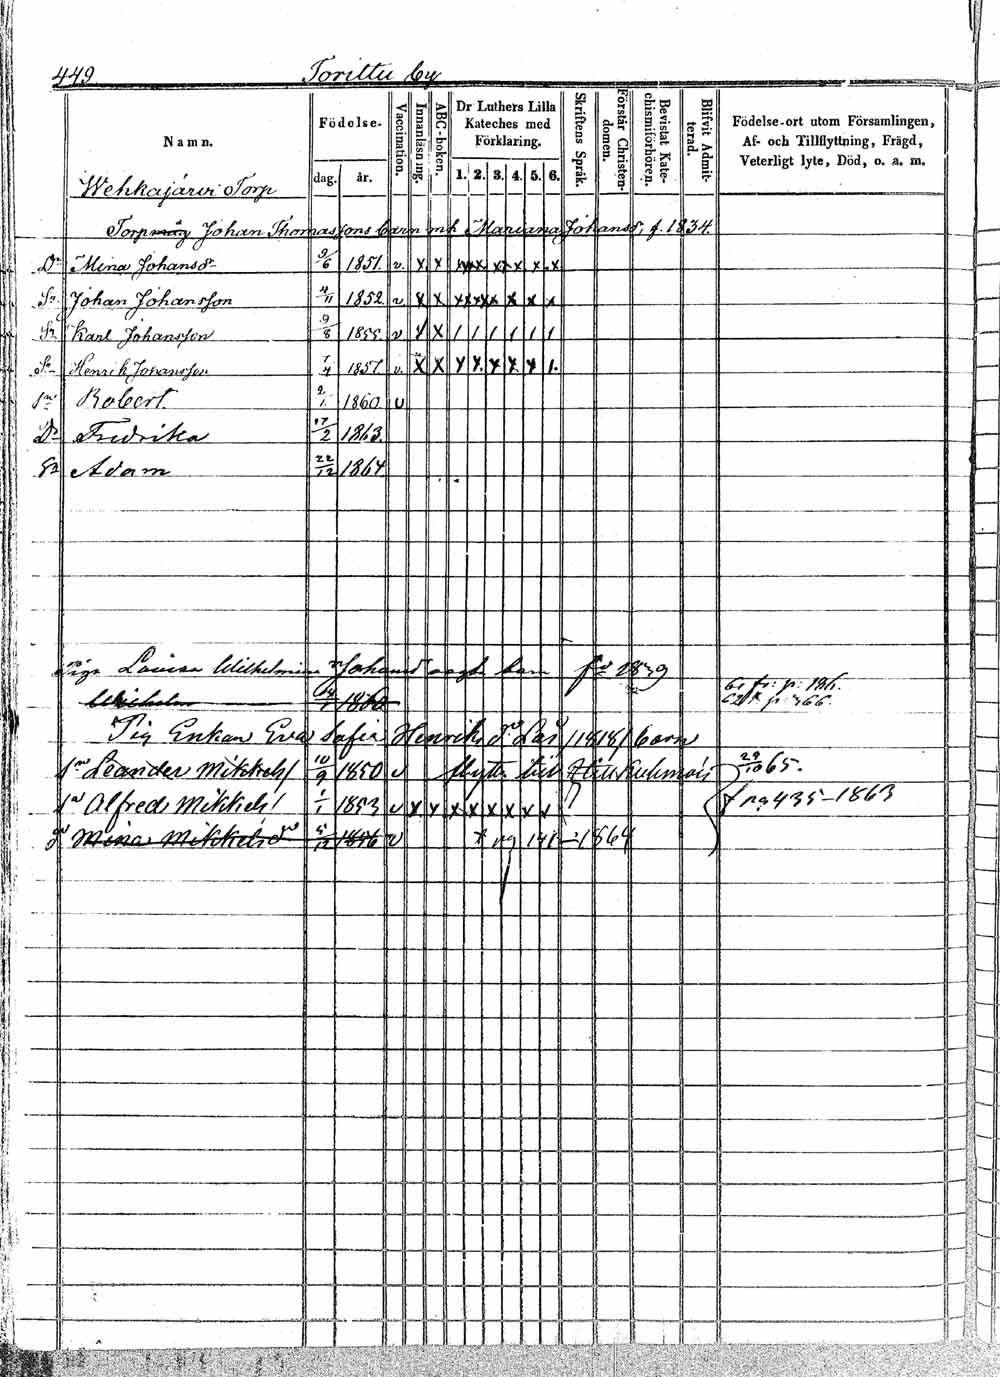 449 Torittu by
Namn.
Födelse-
dag. år.
Vaccination.
Innanläsning.
ABC-boken.
Dr Luthers Lilla
Kateches med
Förklaring.
1. 2. 3. 4. 5. 6.
Skriftens Språk.
Förstår Christen-
domen.
Bevistat Kate-
chismiförhören.
Blifvit Admit-
terad.
Födelse-ort utom Församlingen,
Af- och Tillflyttning, Frägd,
Veterligt lyte, Död, o. a. m.
Wehkajärvi Torp
Johan Thomassons barn m h Mariana Johansd, f. 1834.
Dr Mina Johansd 9/6 1851. v. x x x x x x x x
Sn Johan Johansson 4/11 1852 v x x x x x x x x
Sn Karl Johansson 9/8 1855. v x x / / / / / /
Sn Henrik Johansson 7/4 1857. v. x x x x x x x 1.
Sn Robert. 1860 v
Dr Fredrika 17/2 1863.
Sn Adam 22/12 1864.
Piga Lovisa Wilhelmina Johansdr barn
1860
p: 186.
p: 366.
Pig Enkan Eva Sofia Henriksdr /1818/ barn
Sn Leander Mikkels/ 10/9 1850 v flytt till Kuhmois 29/10 65.
Sn Alfred Mikkels/ 1/1 1853 v x x x x x x x x
pag 435-1863
dr Mina Mikkelsdr 5/12 1856 v pag 141-1864